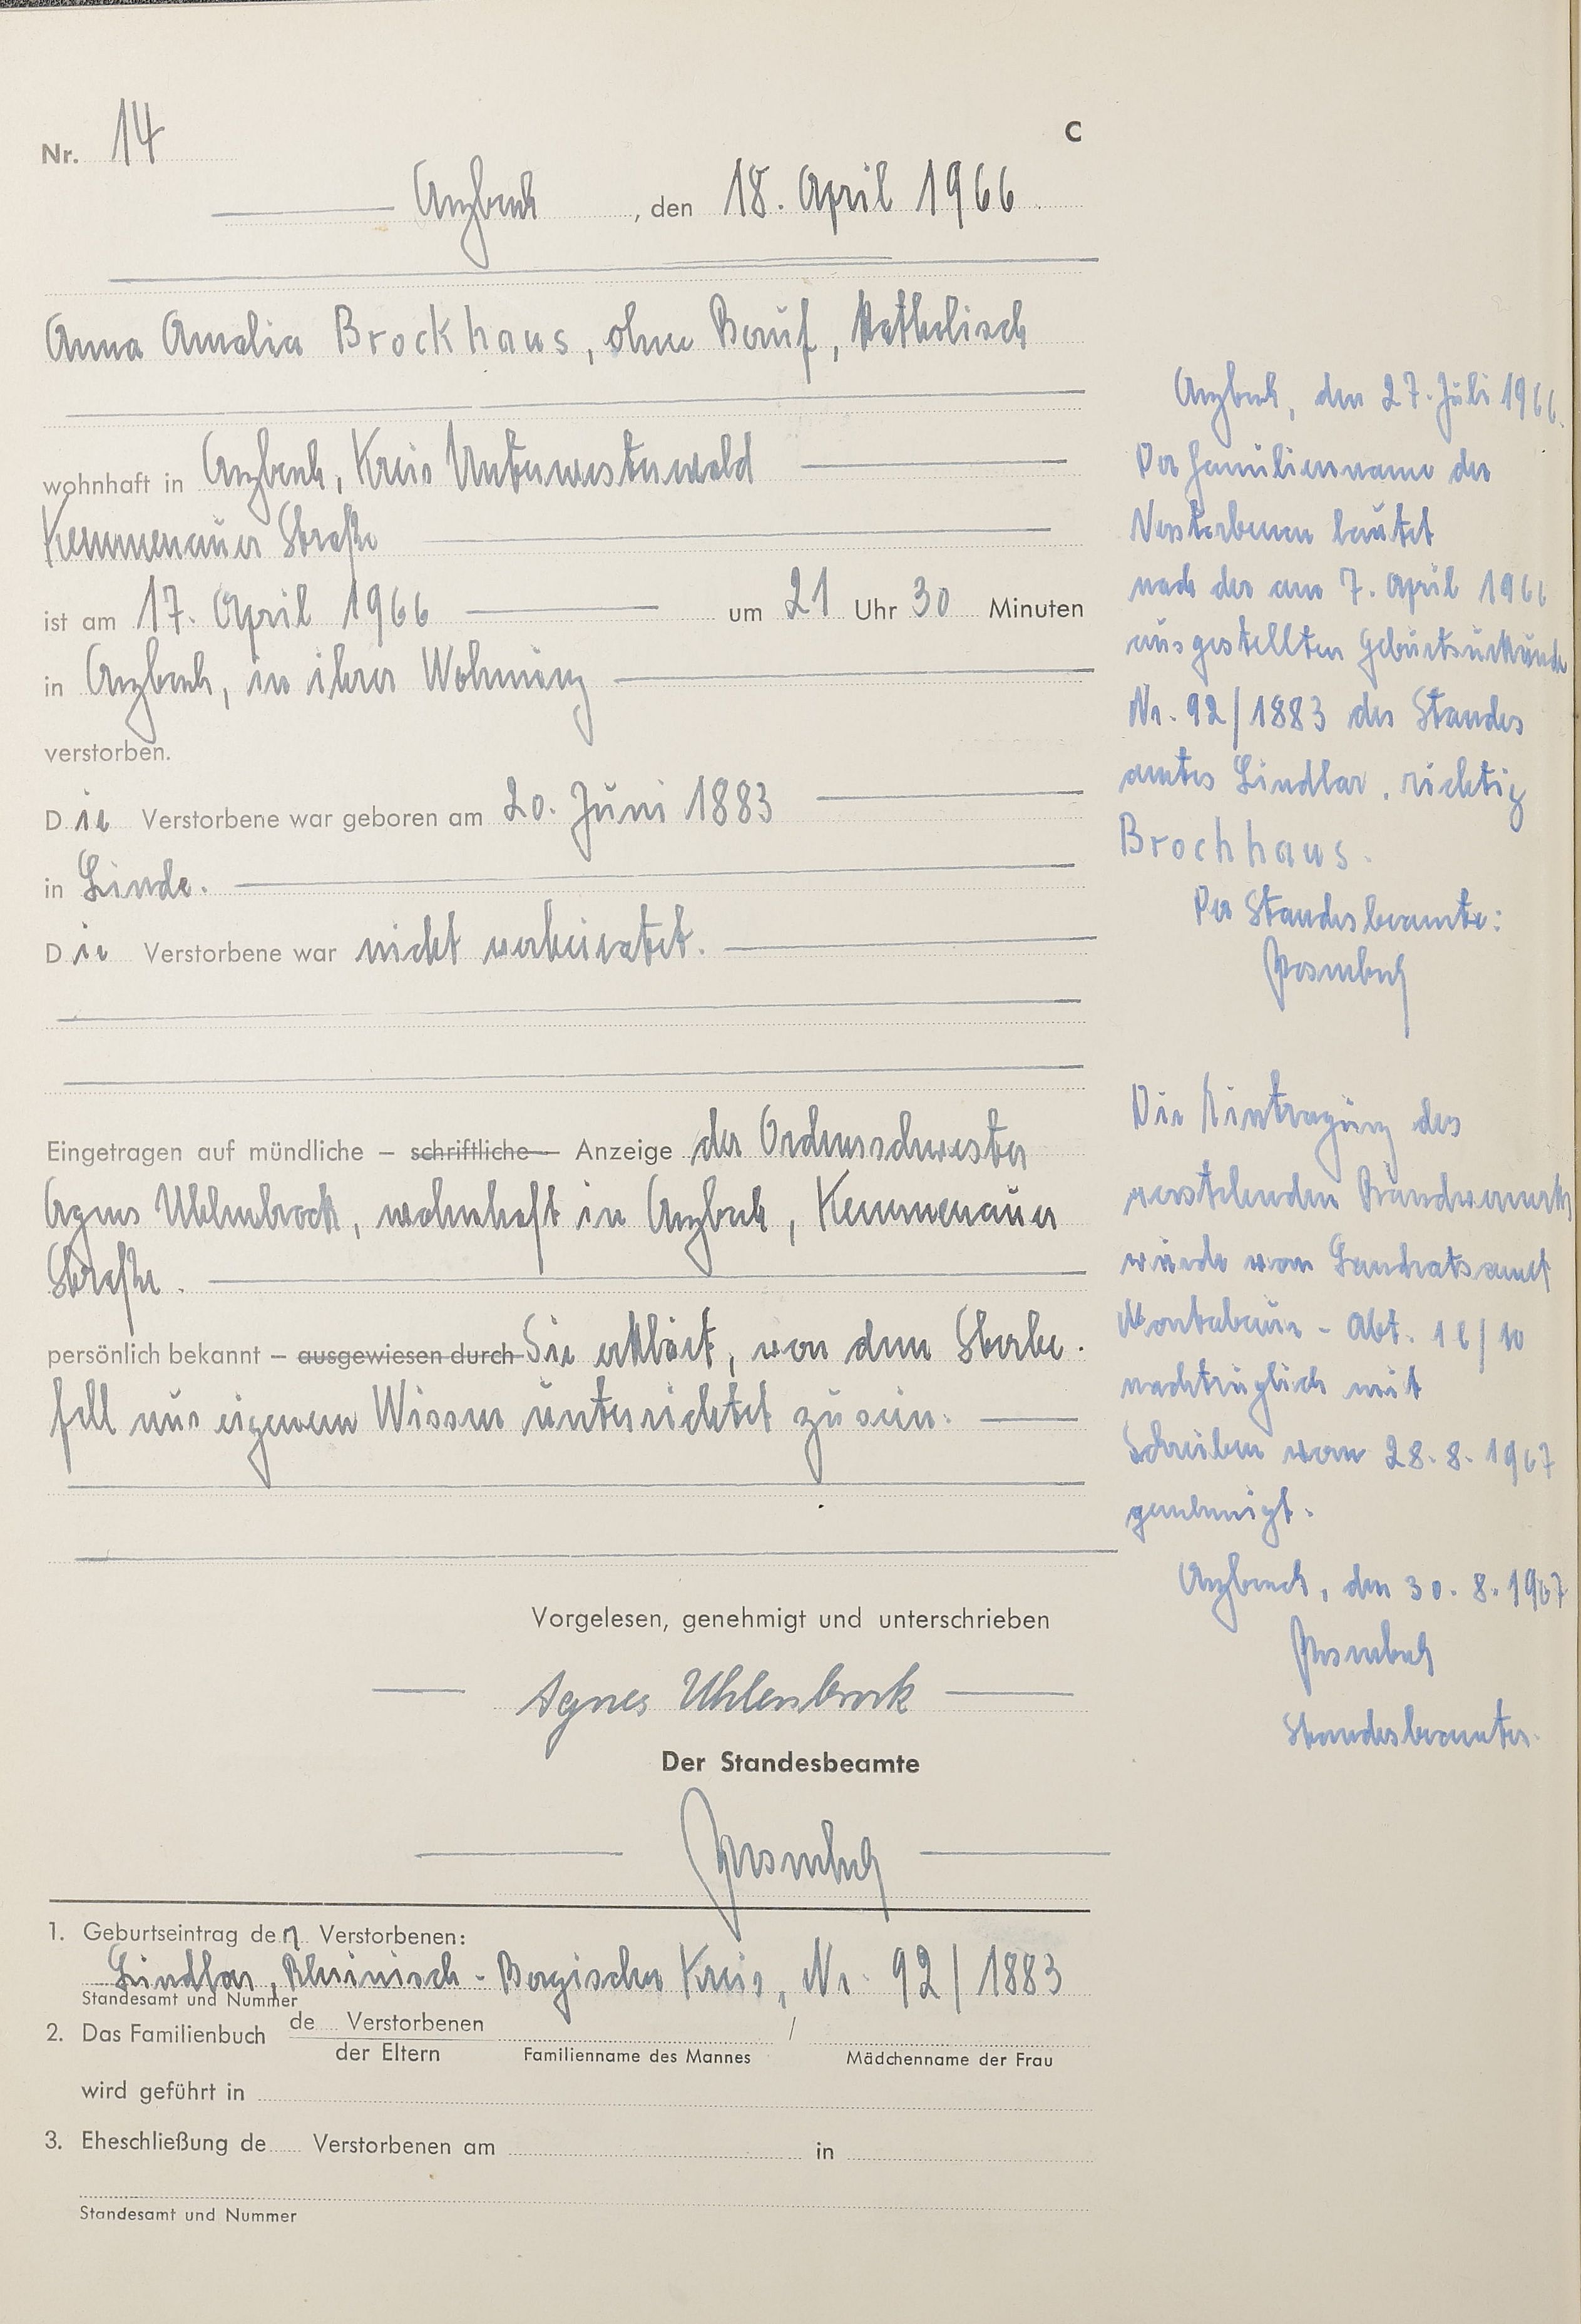 Nr. 14
C
Arzbach, den 18. April 1966
Anna Amalia Brockhaus, ohne Beruf, katholisch
wohnhaft in Arzbach, Kreis Unterwesterwald
Kemmenauer Straße
ist am 17. April 1966 um 21 Uhr 30 Minuten
in Arzbach, in ihrer Wohnung
verstorben.
Die Verstorbene war geboren am 20. Juni 1883
in Linde.
Die Verstorbene war nicht verheiratet.
Eingetragen auf mündliche – schriftliche – Anzeige der Ordensschwester
Agnes Uhlenbrock, wohnhaft in Arzbach, Kemmenauer
Straße.
persönlich bekannt – ausgewiesen durch Sie erklärt, von dem Sterbe-
fall aus eigenem Wissen unterrichtet zu sein.
Vorgelesen, genehmigt und unterschrieben
Agnes Uhlenbrock
Der Standesbeamte
1. Geburtseintrag der Verstorbenen:
Lindlar, Rheinisch-Bergischer Kreis, Nr. 92/1883
Standesamt und Nummer
2. Das Familienbuch de Verstorbenen /
der Eltern Familienname des Mannes Mädchenname der Frau
wird geführt in
3. Eheschließung de Verstorbenen am in
Standesamt und Nummer
Arzbach, den 27. Juli 1966.
Der Familienname der
Verstorbenen lautet
nach der am 7. April 1966
ausgestellten Geburtsurkunde
Nr. 92/1883 des Standes
amtes Lindlar, richtig
Brochhaus.
Der Standesbeamte:
Die Eintragung des
vorstehenden Randvermerks
wurde vom Landratsamt
Montabaur - Abt. 10
nachträglich mit
Schreiben vom 28.8.1967
genehmigt.
Arzbach, den 30.8.1967
Standesbeamter.